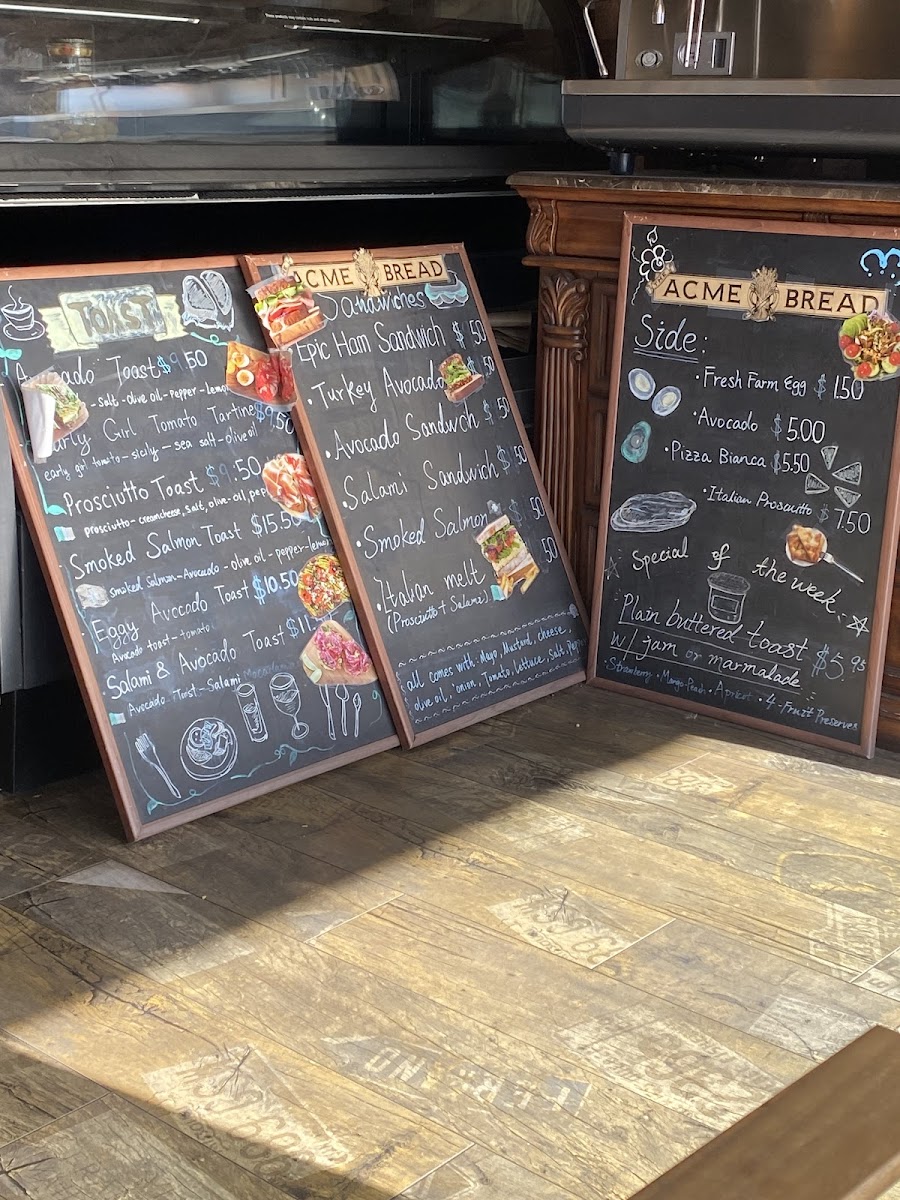 TOAST
Toast $9.50
- salt - olive oil - pepper - lemon
Early Girl Tomato Tartine $9.50
early girl tomato - sicily - sea salt - olive oil
Prosciutto Toast $9.50
prosciutto - creamcheese, salt, olive-oil,
Smoked Salmon Toast $15.50
Smoked Salmon - Avocado - olive oil - pepper - lemon
Eggy Avocado Toast $10.50
Avocado toast - tomato
Salami & Avocado Toast
Avocado. Toast - Salami
ACME BREAD
Sandwiches
Epic Ham Sandwich $ 50
• Turkey Avocado 50
• Avocado Sandwich $ 50
• Salami Sandwich $ 50
• Smoked Salmon $ 50
• Italian melt 50
(Prosciutto + Salami)
all comes with: Mayo, Mustard, cheese,
olive oil, onion, Tomato, lettuce, Salt,
ACME BREAD
Side:
• Fresh Farm Egg $1.50
• Avocado $5.00
• Pizza Bianca $5.50
• Italian Prosciutto $7.50
Special of the week
Plain buttered toast $5.95
w/ jam or marmalade
• Strawberry • Mango Peach • Apricot • 4-Fruit Preserves